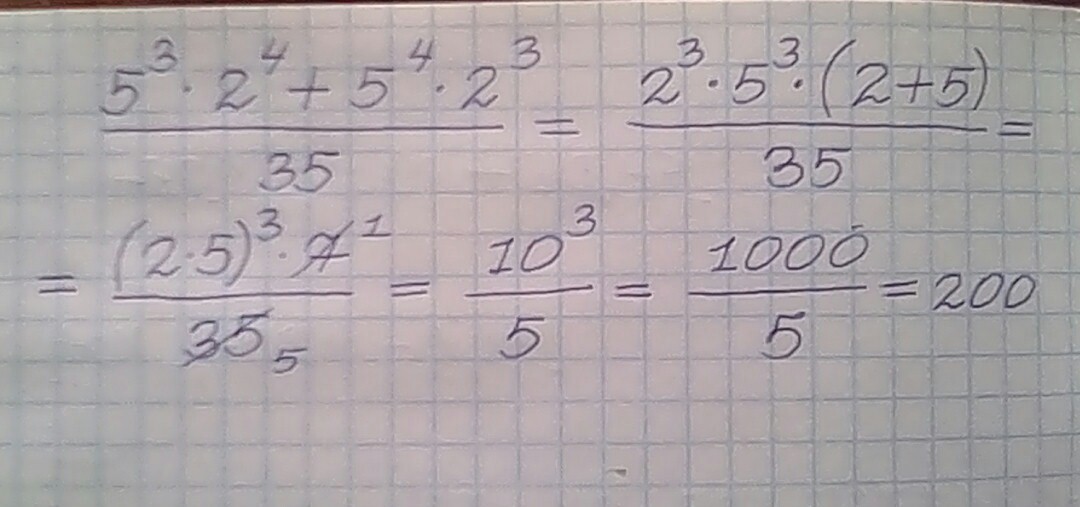 5³ · 2⁴ + 5⁴ · 2³ / 35 = 2³ · 5³ · (2+5) / 35 =
= (2·5)³ · 7 1 / 35 5 = 10³ / 5 = 1000 / 5 = 200